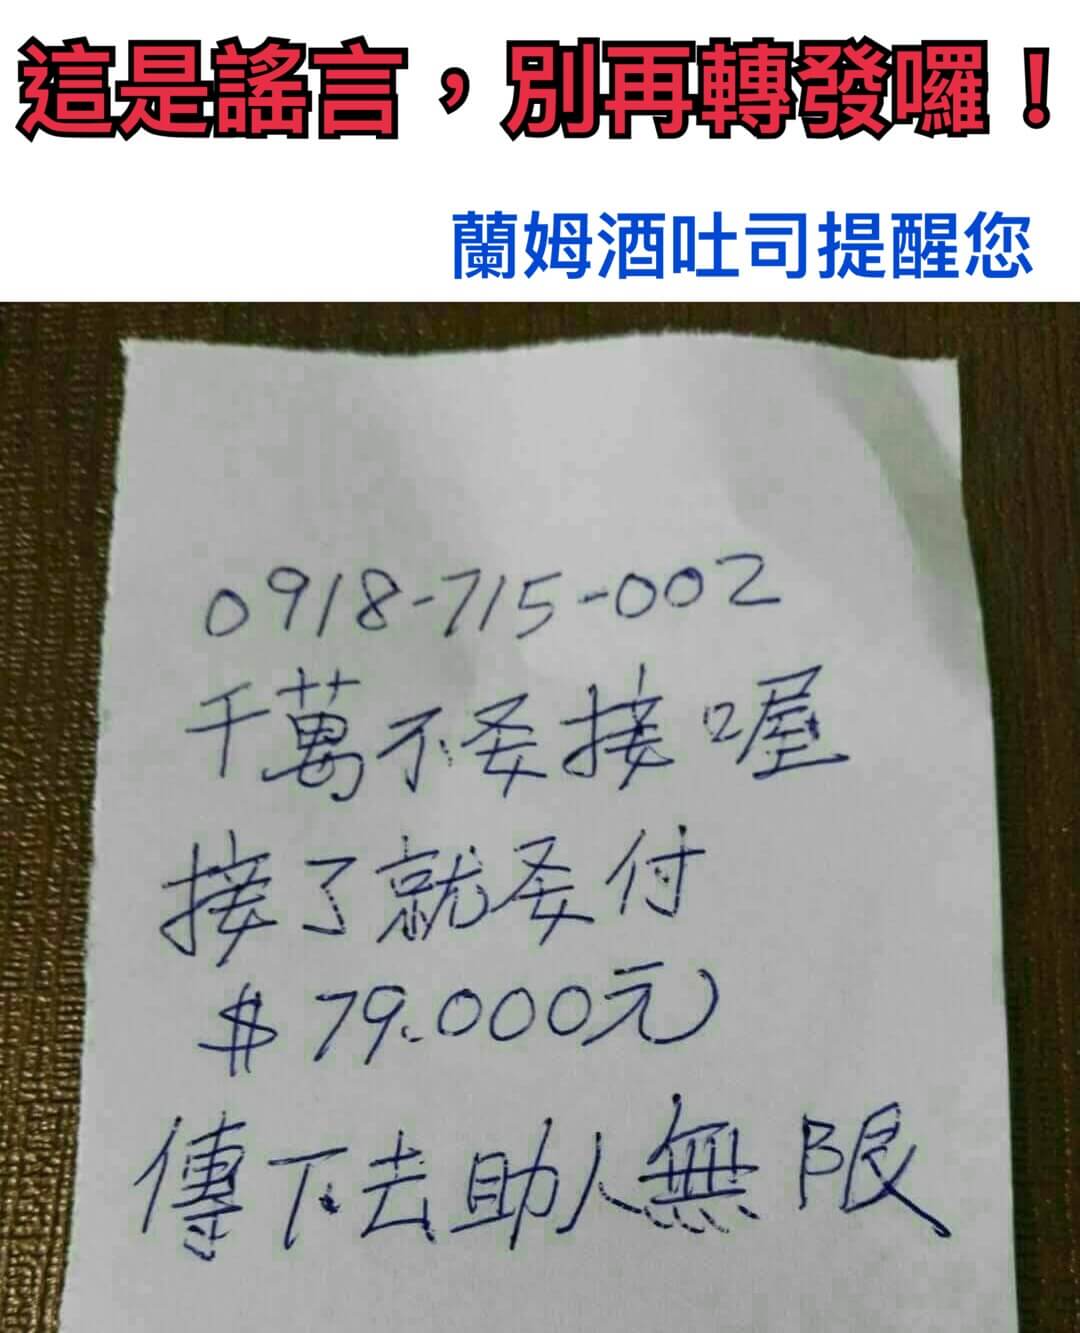 這是謠言，別再轉發囉！
蘭姆酒吐司提醒您
0918-715-002
千萬不要接喔
接了就要付
$79.000元
傳下去助人無限